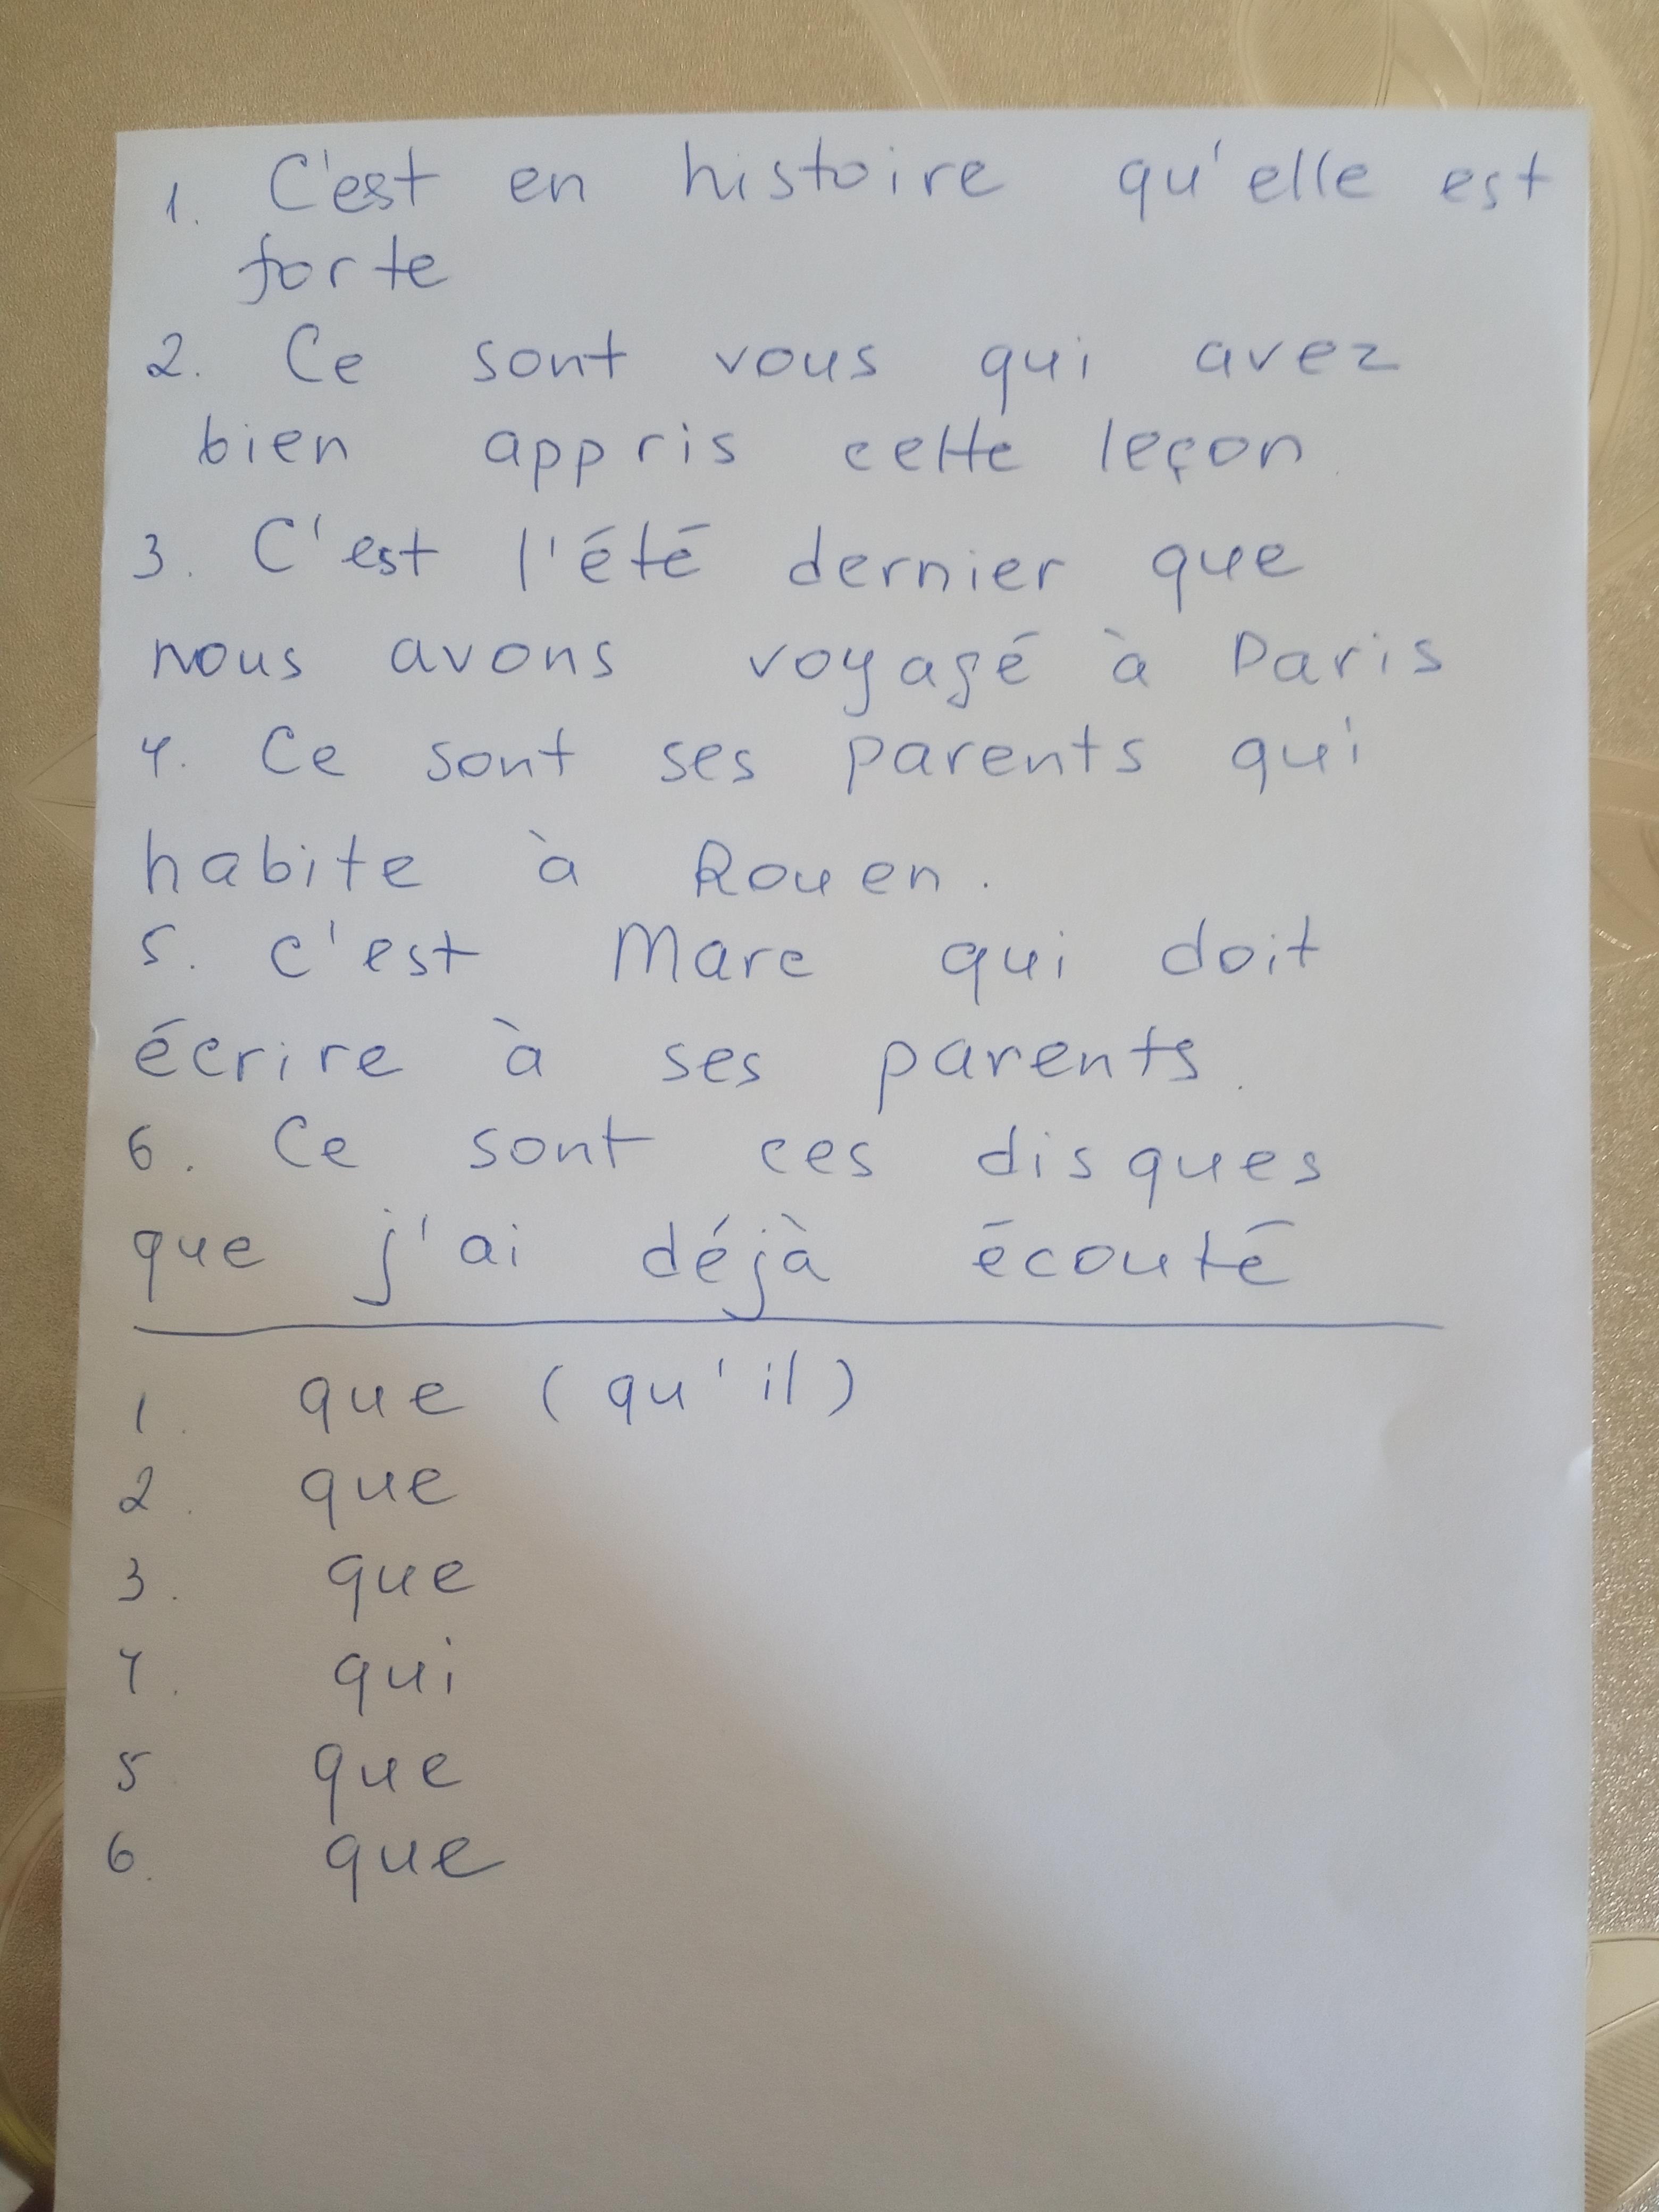 1. C'est en histoire qu'elle est
forte
2. Ce sont vous qui avez
bien appris cette leçon.
3. C'est l'été dernier que
nous avons voyagé à Paris
4. Ce sont ses parents qui
habite à Rouen.
5. C'est Marc qui doit
écrire à ses parents.
6. Ce sont ces disques
que j'ai déjà écouté
1. que (qu'il)
2. que
3. que
4. qui
5. que
6. que